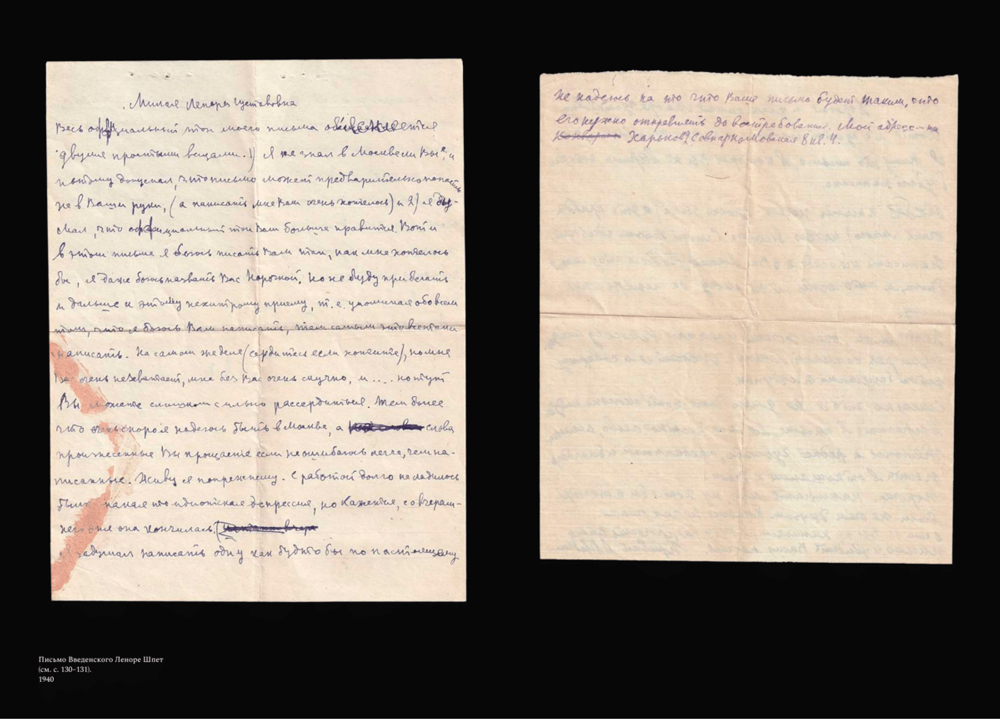 Милая Ленора Густавовна
Весь оффициальный тон моего письма объясняется
двумя простыми вещами. 1) Я не знал в Москве ли Вы и
потому допускал, что письмо может предварительно попасть
не в Ваши руки, (а написать мне Вам очень хотелось) и 2) я ду-
мал, что оффициальный тон Вам больше нравится. Вот и
в этом письме я боюсь писать Вам так, как мне хотелось
бы, я даже боюсь назвать Вас Норочкой. Но не буду прибегать
и дальше к этому нехитрому приему, т. е. упоминая обо всем
том, что я боюсь Вам написать, тем самым это все-таки
написать. На самом же деле (сердитесь если хотите), но мне
Вас очень не хватает, мне без Вас очень скучно, и .... но тут
Вы можете слишком сильно рассердиться. Тем более
что очень скоро я надеюсь быть в Москве, а слова
произнесенные Вы прощаете если не ошибаюсь легче, чем на-
писанные. Живу я по прежнему. С работой долго не ладилось
была какая-то идиотская депрессия, но кажется, со вчераш-
него дня она кончилась.
задумал написать одну как будто бы по настоящему
не надеюсь на то что Ваше письмо будет таким, что
его нужно отправлять до востребования. Мой адрес на
Харьков, Совнаркомовская 8 кв. 4.
Письмо Введенского Леноре Шпет
(см. с. 130–131).
1940